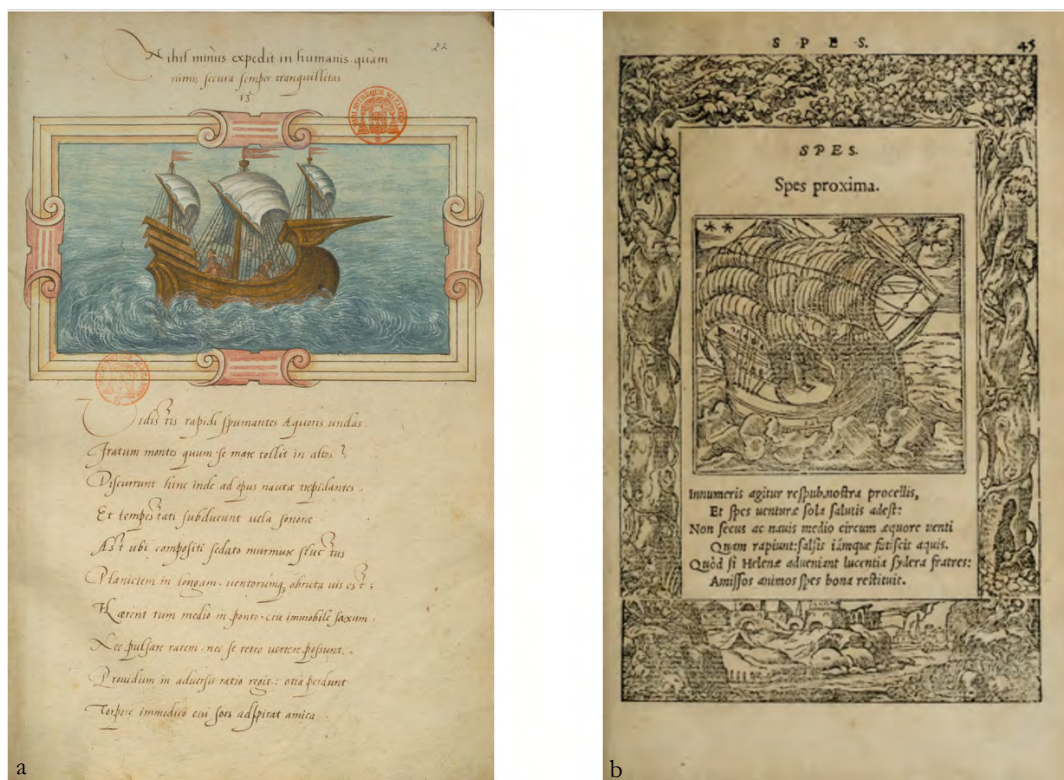 22
Nihil minus expedit in humanis quàm
nimis secura semper tranquillitas
13
Vidistis rapidi spumantes Æquoris undas.
Iratum montes quum se mare tollit in altos?
Discurrunt hinc inde ad opus nautæ trepidantes.
Et tempestati subducunt vela sonoræ
Ast ubi compositi sedato murmure fluctus
Planiciem in longam. ventorumq, obruta vis est:
Hærent tum medio in ponto. ceu immobile saxum.
Nec pulsare ratem. nec se retro vertere possunt.
Providum in adversis ratio regit: otia perdunt
Torpere immodico cui sors adspirat amica
a
S P E S. 45
SPES.
Spes proxima.
Innumeris agitur respub. nostra procellis,
Et spes uenturæ sola salutis adest:
Non secus ac nauis medio circum æquore uenti
Quam rapiunt: salsis iámque fatiscit aquis.
Quòd si Helenæ adueniant lucentia sydera fratres:
Amissos animos spes bona restituit.
b